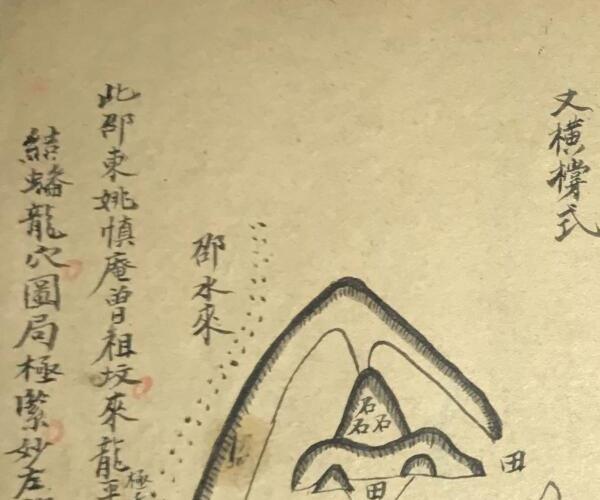 又橫撐式
邵水來
此邵東姚慎庵曾祖坟來龍
結蟠龍穴圖局極緊妙左
石
石石
田
田